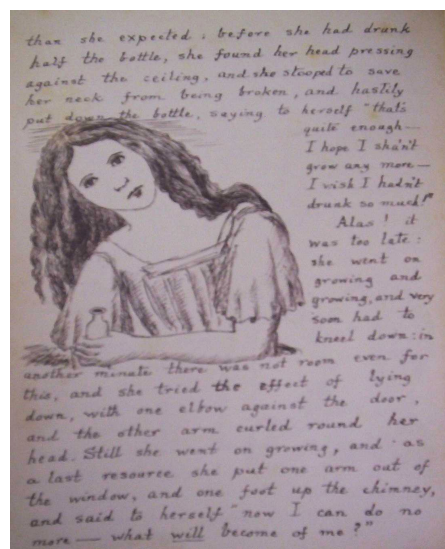 than she expected; before she had drunk
half the bottle, she found her head pressing
against the ceiling, and she stooped to save
her neck from being broken, and hastily
put down the bottle, saying to herself "that's
quite enough—
I hope I shan't
grow any more—
I wish I hadn't
drunk so much!"
Alas! it
was too late:
she went on
growing and
growing, and very
soon had to
kneel down: in
another minute there was not room even for
this, and she tried the effect of lying
down, with one elbow against the door,
and the other arm curled round her
head. Still she went on growing, and as
a last resource she put one arm out of
the window, and one foot up the chimney,
and said to herself "now I can do no
more — what will become of me?"